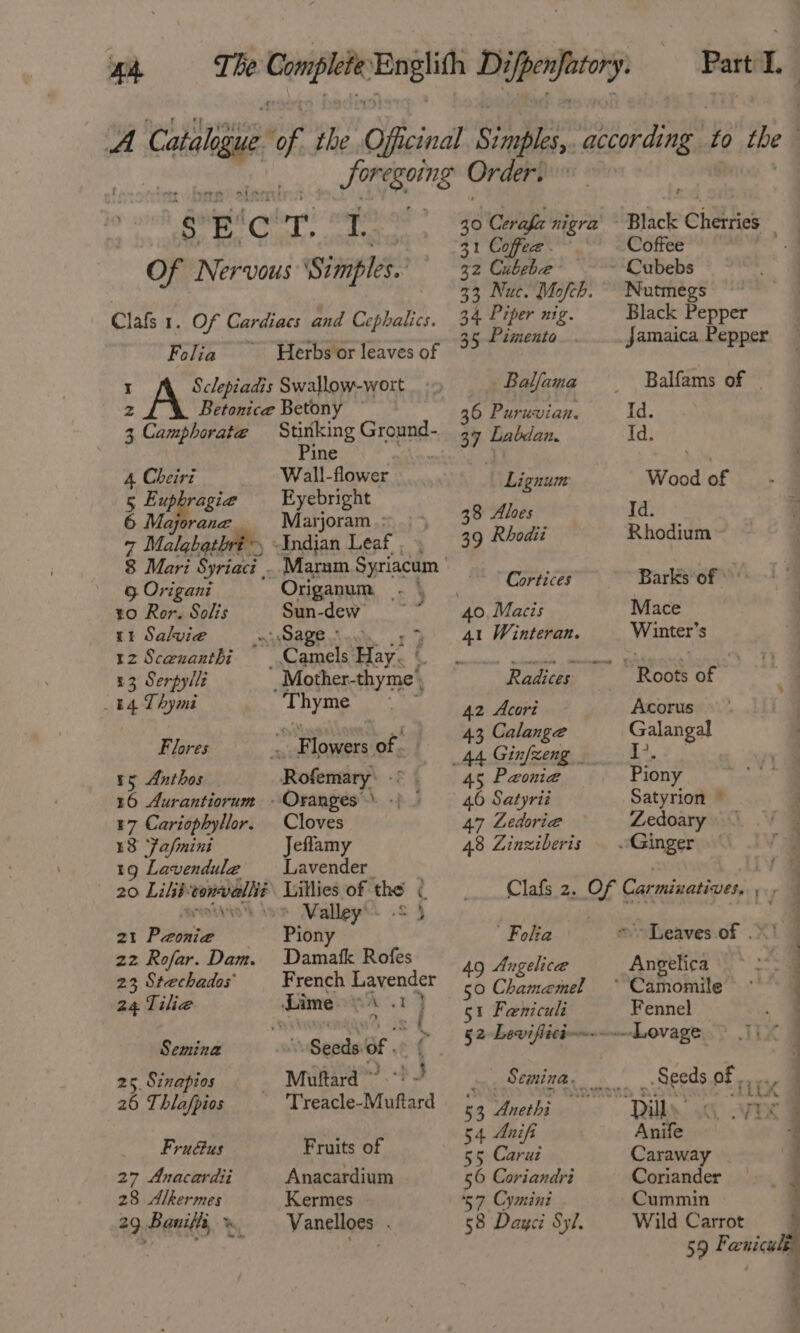 44 The Complete Engliſh Diſpenſatory. Part I.
A Catalogue of the Officinal Simples, according to the
foregoing Order.
SECT. I.
Of Nervous Simples.
Claſs 1. Of Cardiacs and Cephalics.
Folia Herbs or leaves of
1 Aſclepiadis Swallow-wort
2 Betonicæ Betony
3 Camphoratæ Stinking Ground-
Pine
4 Cheiri Wall-flower
5 Euphragiæ Eyebright
6 Majoranæ Marjoram
7 Malabathri Indian Leaf
8 Mari Syriaci Marum Syriacum
9 Origani Origanum
10 Ror. Solis Sun-dew
11 Salviæ Sage
12 Scœnanthi Camels Hay
13 Serpylli Mother-thyme
14 Thymi Thyme
Flores Flowers of
15 Anthos Roſemary
16 Aurantiorum Oranges
17 Cariophyllor. Cloves
18 Jaſmini Jeſſamy
19 Lavendulæ Lavender
20 Lilii convallii Lillies of the
Valley
21 Pæoniæ Piony
22 Roſar. Dam. Damaſk Roſes
23 Stæchados French Lavender
24 Tiliæ Lime
Semina Seeds of
25 Sinapios Muſtard
26 Thlaſpios Treacle-Muſtard
Fructus Fruits of
27 Anacardii Anacardium
28 Alkermes Kermes
29 Banilli Vanelloes
30 Ceraſa nigra Black Cherries
31 Coffeæ Coffee
32 Cubebæ Cubebs
33 Nuc. Moſch. Nutmegs
34 Piper nig. Black Pepper
35 Pimento Jamaica Pepper
Balſama Balſams of
36 Puruvian. Id.
37 Labdan. Id.
Lignum Wood of
38 Aloes Id.
39 Rhodii Rhodium
Cortices Barks of
40 Macis Mace
41 Winteran. Winter's
Radices Roots of
42 Acori Acorus
43 Calangæ Galangal
44 Ginſzeng
45 Pæoniæ Piony
46 Satyrii Satyrion
47 Zedoriæ Zedoary
48 Zinziberis Ginger
Claſs 2. Of Carminatives.
Folia Leaves of
49 Angelicæ Angelica
50 Chamæmel Camomile
51 Fœniculi Fennel
52 Leviſtici Lovage
Semina. Seeds of
53 Anethi Dill
54 Aniſi Aniſe
55 Carui Caraway
56 Coriandri Coriander
57 Cymini Cummin
58 Dauci Syl. Wild Carrot
59 Fæniculi